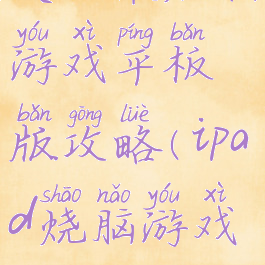 yóu xì píng bǎn
游戏平板
bǎn gōng lüè
版攻略(ipa
shāo nǎo yóu xì
d烧脑游戏